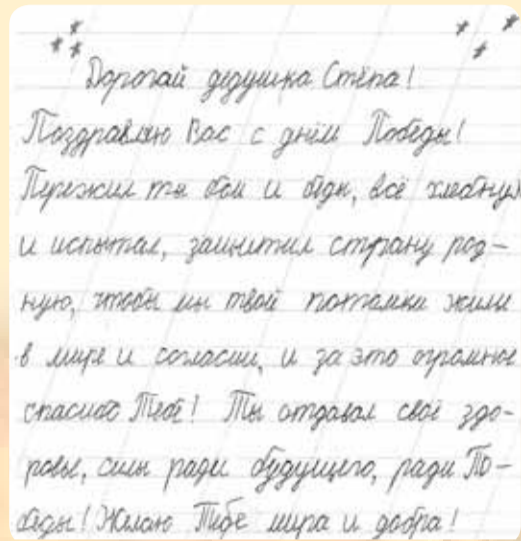 Дорогай дедушка Стёпа!
Поздравляю Вас с днём Победы!
Пережил ты бои и беды, всё хлебнул
и испытал, защитил страну род-
ную, чтобы мы твои потомки жили
в мире и согласии, и за это огромное
спасибо Тебе! Ты отдавал своё здо-
ровье, силы ради будущего, ради По-
беды! Желаю Тебе мира и добра!